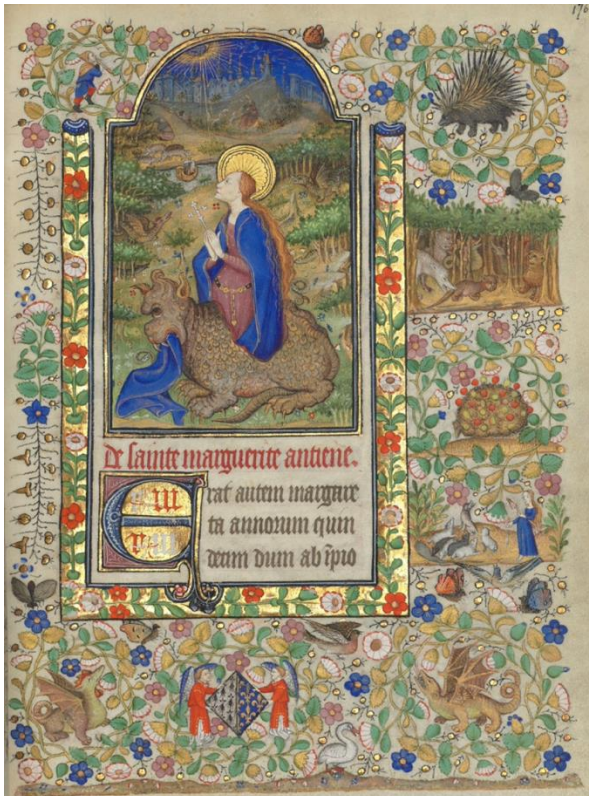 de sainte marguerite antiene.
Erat autem margare
ta annorum quin
decim dum ab īpio